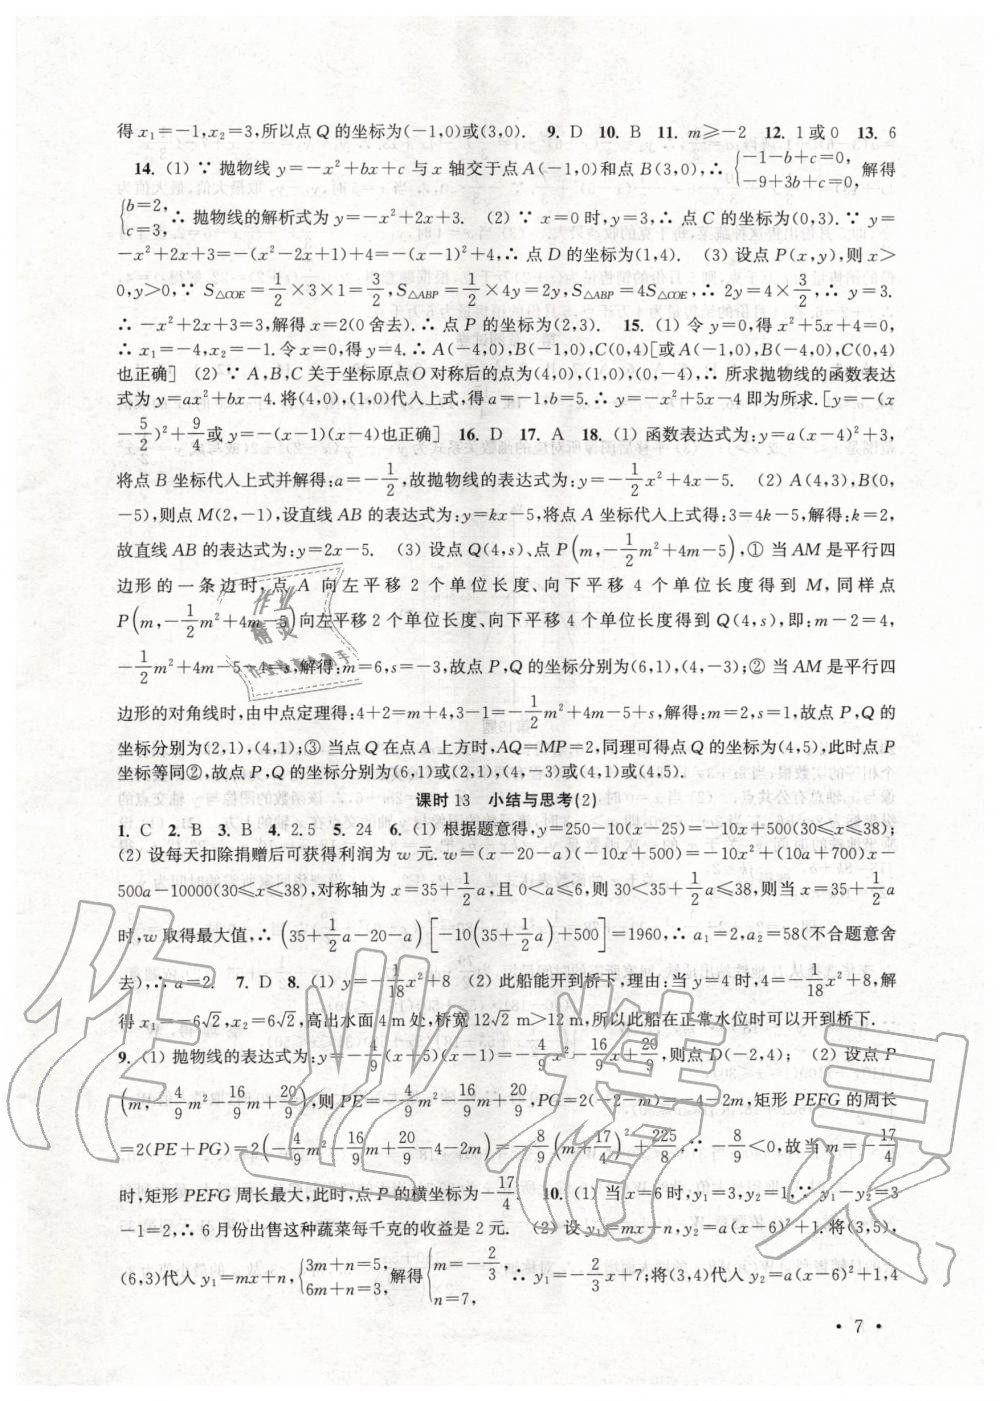 得 x₁=-1,x₂=3,所以点 Q 的坐标为(-1,0)或(3,0). 9. D 10. B 11. m≥-2 12. 1 或 0 13. 6
14. (1) ∵ 抛物线 y=-x²+bx+c 与 x 轴交于点 A(-1,0)和点 B(3,0),∴ {-1-b+c=0, -9+3b+c=0, 解得
{b=2, c=3, ∴ 抛物线的解析式为 y=-x²+2x+3. (2) ∵ x=0 时,y=3,∴ 点 C 的坐标为(0,3).∵ y=
-x²+2x+3=-(x²-2x+1)+4=-(x-1)²+4,∴ 点 D 的坐标为(1,4). (3) 设点 P(x,y),则 x>
0,y>0,∵ S△COE=1/2×3×1=3/2,S△ABP=1/2×4y=2y,S△ABP=4S△COE,∴ 2y=4×3/2,∴ y=3.
∴ -x²+2x+3=3,解得 x=2(0 舍去).∴ 点 P 的坐标为(2,3). 15. (1) 令 y=0,得 x²+5x+4=0,
∴ x₁=-4,x₂=-1.令 x=0,得 y=4.∴ A(-4,0),B(-1,0),C(0,4)[或 A(-1,0),B(-4,0),C(0,4)
也正确] (2) ∵ A,B,C 关于坐标原点 O 对称后的点为(4,0),(1,0),(0,-4),∴ 所求抛物线的函数表达
式为 y=ax²+bx-4.将(4,0),(1,0)代入上式,得 a=-1,b=5.∴ y=-x²+5x-4 即为所求.[y=-(x
-5/2)²+9/4或 y=-(x-1)(x-4)也正确] 16. D 17. A 18. (1) 函数表达式为:y=a(x-4)²+3,
将点 B 坐标代入上式并解得:a=-1/2,故抛物线的表达式为:y=-1/2x²+4x-5. (2) A(4,3),B(0,
-5),则点 M(2,-1),设直线 AB 的表达式为:y=kx-5,将点 A 坐标代入上式得:3=4k-5,解得:k=2,
故直线 AB 的表达式为:y=2x-5. (3) 设点 Q(4,s)、点 P(m,-1/2m²+4m-5),① 当 AM 是平行四
边形的一条边时,点 A 向左平移 2 个单位长度、向下平移 4 个单位长度得到 M,同样点
P(m,-1/2m²+4m-5)向左平移 2 个单位长度、向下平移 4 个单位长度得到 Q(4,s),即:m-2=4,
-1/2m²+4m-5-4=s,解得:m=6,s=-3,故点 P,Q 的坐标分别为(6,1),(4,-3);② 当 AM 是平行四
边形的对角线时,由中点定理得:4+2=m+4,3-1=-1/2m²+4m-5+s,解得:m=2,s=1,故点 P,Q 的
坐标分别为(2,1),(4,1);③ 当点 Q 在点 A 上方时,AQ=MP=2,同理可得点 Q 的坐标为(4,5),此时点 P
坐标等同②,故点 P,Q 的坐标分别为(6,1)或(2,1),(4,-3)或(4,1)或(4,5).
课时 13 小结与思考(2)
1. C 2. B 3. B 4. 2.5 5. 24 6. (1) 根据题意得,y=250-10(x-25)=-10x+500(30≤x≤38);
(2) 设每天扣除捐赠后可获得利润为 w 元.w=(x-20-a)(-10x+500)=-10x²+(10a+700)x-
500a-10000(30≤x≤38),对称轴为 x=35+1/2a,且 0<a≤6,则 30<35+1/2a≤38,则当 x=35+1/2a
时,w 取得最大值,∴ (35+1/2a-20-a)[-10(35+1/2a)+500]=1960,∴ a₁=2,a₂=58(不合题意舍
去),∴ a=2. 7. D 8. (1) y=-1/18x²+8 (2) 此船能开到桥下,理由:当 y=4 时,4=-1/18x²+8,解
得 x₁=-6√2,x₂=6√2,高出水面 4 m 处,桥宽 12√2 m>12 m,所以此船在正常水位时可以开到桥下.
9. (1) 抛物线的表达式为:y=-4/9(x+5)(x-1)=-4/9x²-16/9x+20/9,则点 D(-2,4); (2) 设点 P
(m,-4/9m²-16/9m+20/9),则 PE=-4/9m²-16/9m+20/9,PG=2(-2-m)=-4-2m,矩形 PEFG 的周长
=2(PE+PG)=2(-4/9m²-16/9m+20/9-4-2m)=-8/9(m+17/4)²+225/8,∵ -8/9<0,故当 m=-17/4
时,矩形 PEFG 周长最大,此时,点 P 的横坐标为-17/4. 10. (1) 当 x=6 时,y₁=3,y₂=1,∵ y₁-y₂=3
-1=2,∴ 6 月份出售这种蔬菜每千克的收益是 2 元. (2) 设 y₁=mx+n,y₂=a(x-6)²+1.将(3,5),
(6,3)代入 y₁=mx+n,{3m+n=5, 6m+n=3, 解得{m=-2/3, n=7, ∴ y₁=-2/3x+7;将(3,4)代入 y₂=a(x-6)²+1,4
• 7 •
作业精灵